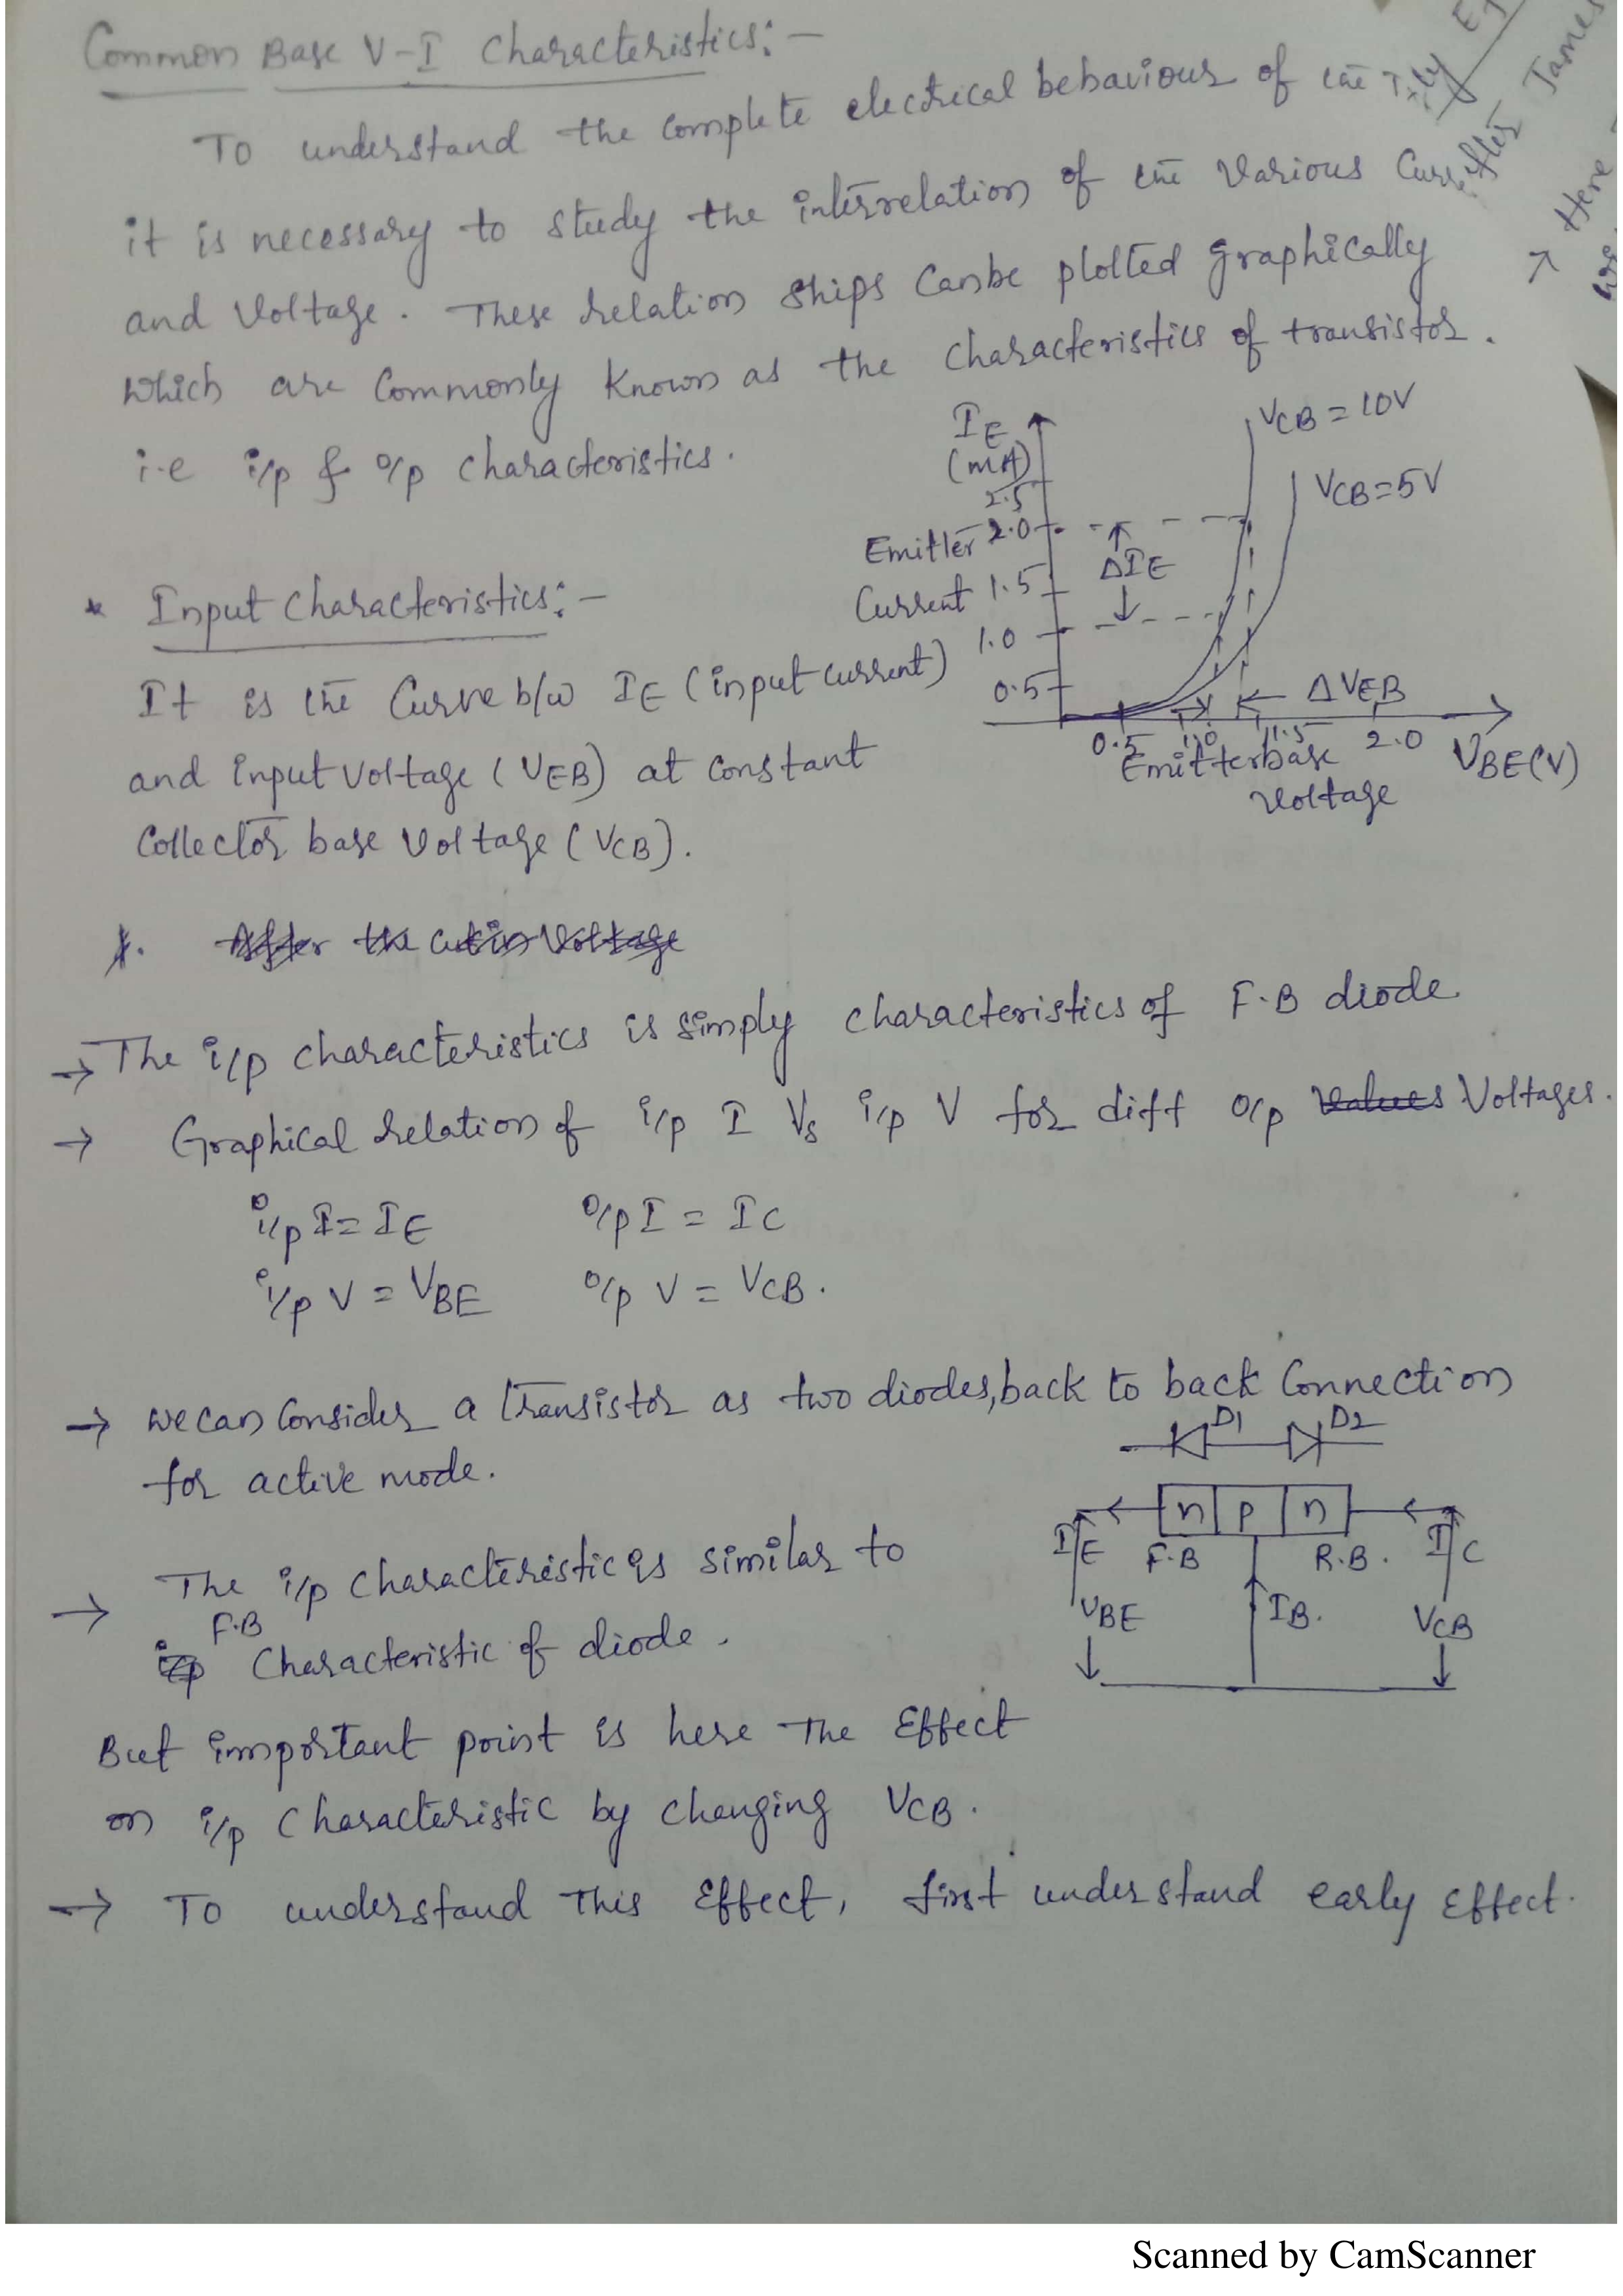 Common Base V-I Characteristics:-
To understand the complete electrical behaviour of the
it is necessary to study the interrelation of the various
and voltage. These relation ships can be plotted graphically
which are commonly known as the characteristics of transistor.
i.e i/p & o/p characteristics.
IE
(mA)
2.5
2.0
1.5
1.0
0.5
Emitter
Current
VCB = 10V
VCB = 5V
ΔIE
ΔVEB
0.5 1.0 1.5 2.0 VBE(V)
Emitter base
voltage
* Input characteristics:-
It is the Curve b/w IE (input current)
and input voltage (VEB) at constant
Collector base voltage (VCB).
After the cutin voltage
→ The i/p characteristics is simply characteristics of F.B diode
→ Graphical relation of i/p I Vs i/p V for diff o/p values Voltages.
i/p I = IE o/p I = IC
i/p V = VBE o/p V = VCB.
→ we can consider a transistor as two diodes, back to back connection
for active mode.
D1 D2
n p n
IE F.B R.B. IC
VBE IB. VCB
→ The i/p characteristic is similar to
F.B
i/p characteristic of diode.
But important point is here the effect
on i/p characteristic by changing VCB.
→ To understand this effect, first understand early effect.
James
→ Here
Scanned by CamScanner